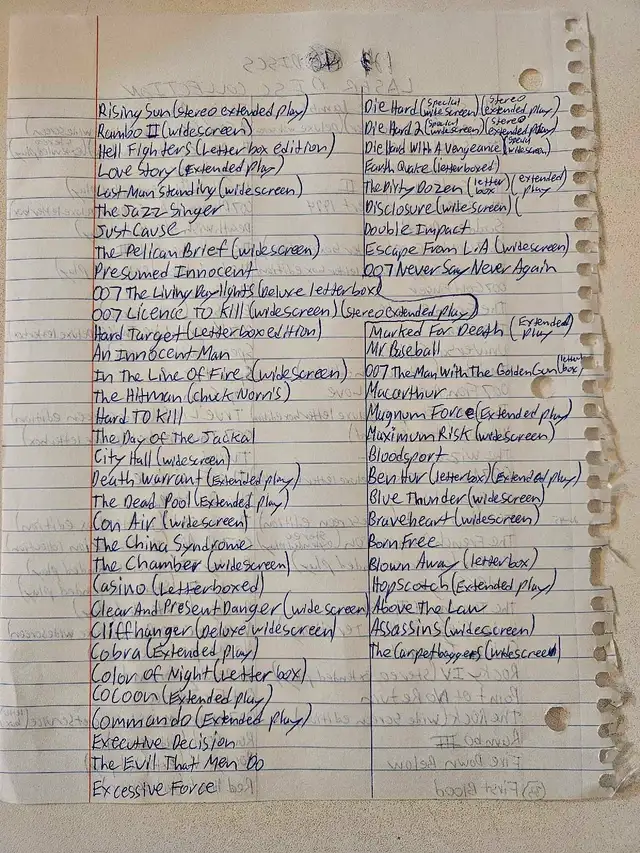 Rising Sun (stereo extended play)
Rambo II (widescreen)
Hell Fighters (Letterbox edition)
Love Story (Extended play)
Last Man Standing (widescreen)
The Jazz Singer
Just Cause
The Pelican Brief (widescreen)
Presumed Innocent
007 The Living Daylights (Deluxe letterbox)
007 Licence To Kill (widescreen) (stereo Extended play)
Hard Target (Letterbox edition)
An Innocent Man
In The Line Of Fire (widescreen)
The Hitman (chuck Norris)
Hard TO Kill
The Day of The Jackal
City Hall (widescreen)
Death Warrant (Extended play)
The Dead Pool (Extended play)
Con Air (widescreen)
The China Syndrome
The Chamber (widescreen)
Casino (Letterboxed)
Clear And Present Danger (widescreen)
Cliffhanger (Deluxe widescreen)
Cobra (Extended play)
Color of Night (Letter box)
Cocoon (Extended play)
Commando (Extended play)
Executive Decision
The Evil That Men Do
Excessive Force
Die Hard (special widescreen) (stereo extended play)
Die Hard 2 (special widescreen) (stereo extended play)
Die Hard With A Vengeance (special widescreen)
Earth Quake (letterboxed)
The Dirty Dozen (letter box) (extended play)
Disclosure (widescreen) (
Double Impact
Escape From L.A (widescreen)
007 Never Say Never Again
Marked For Death (Extended play)
Mr Baseball
007 The Man With The Golden Gun (letter box)
Macarthur
Magnum Force (Extended play)
Maximum Risk (widescreen)
Bloodsport
Ben Hur (letterbox) (Extended play)
Blue Thunder (widescreen)
Braveheart (widescreen)
Born Free
Blown Away (letterbox)
Hopscotch (Extended play)
Above The Law
Assassins (widescreen)
The Carpetbaggers (widescreen)